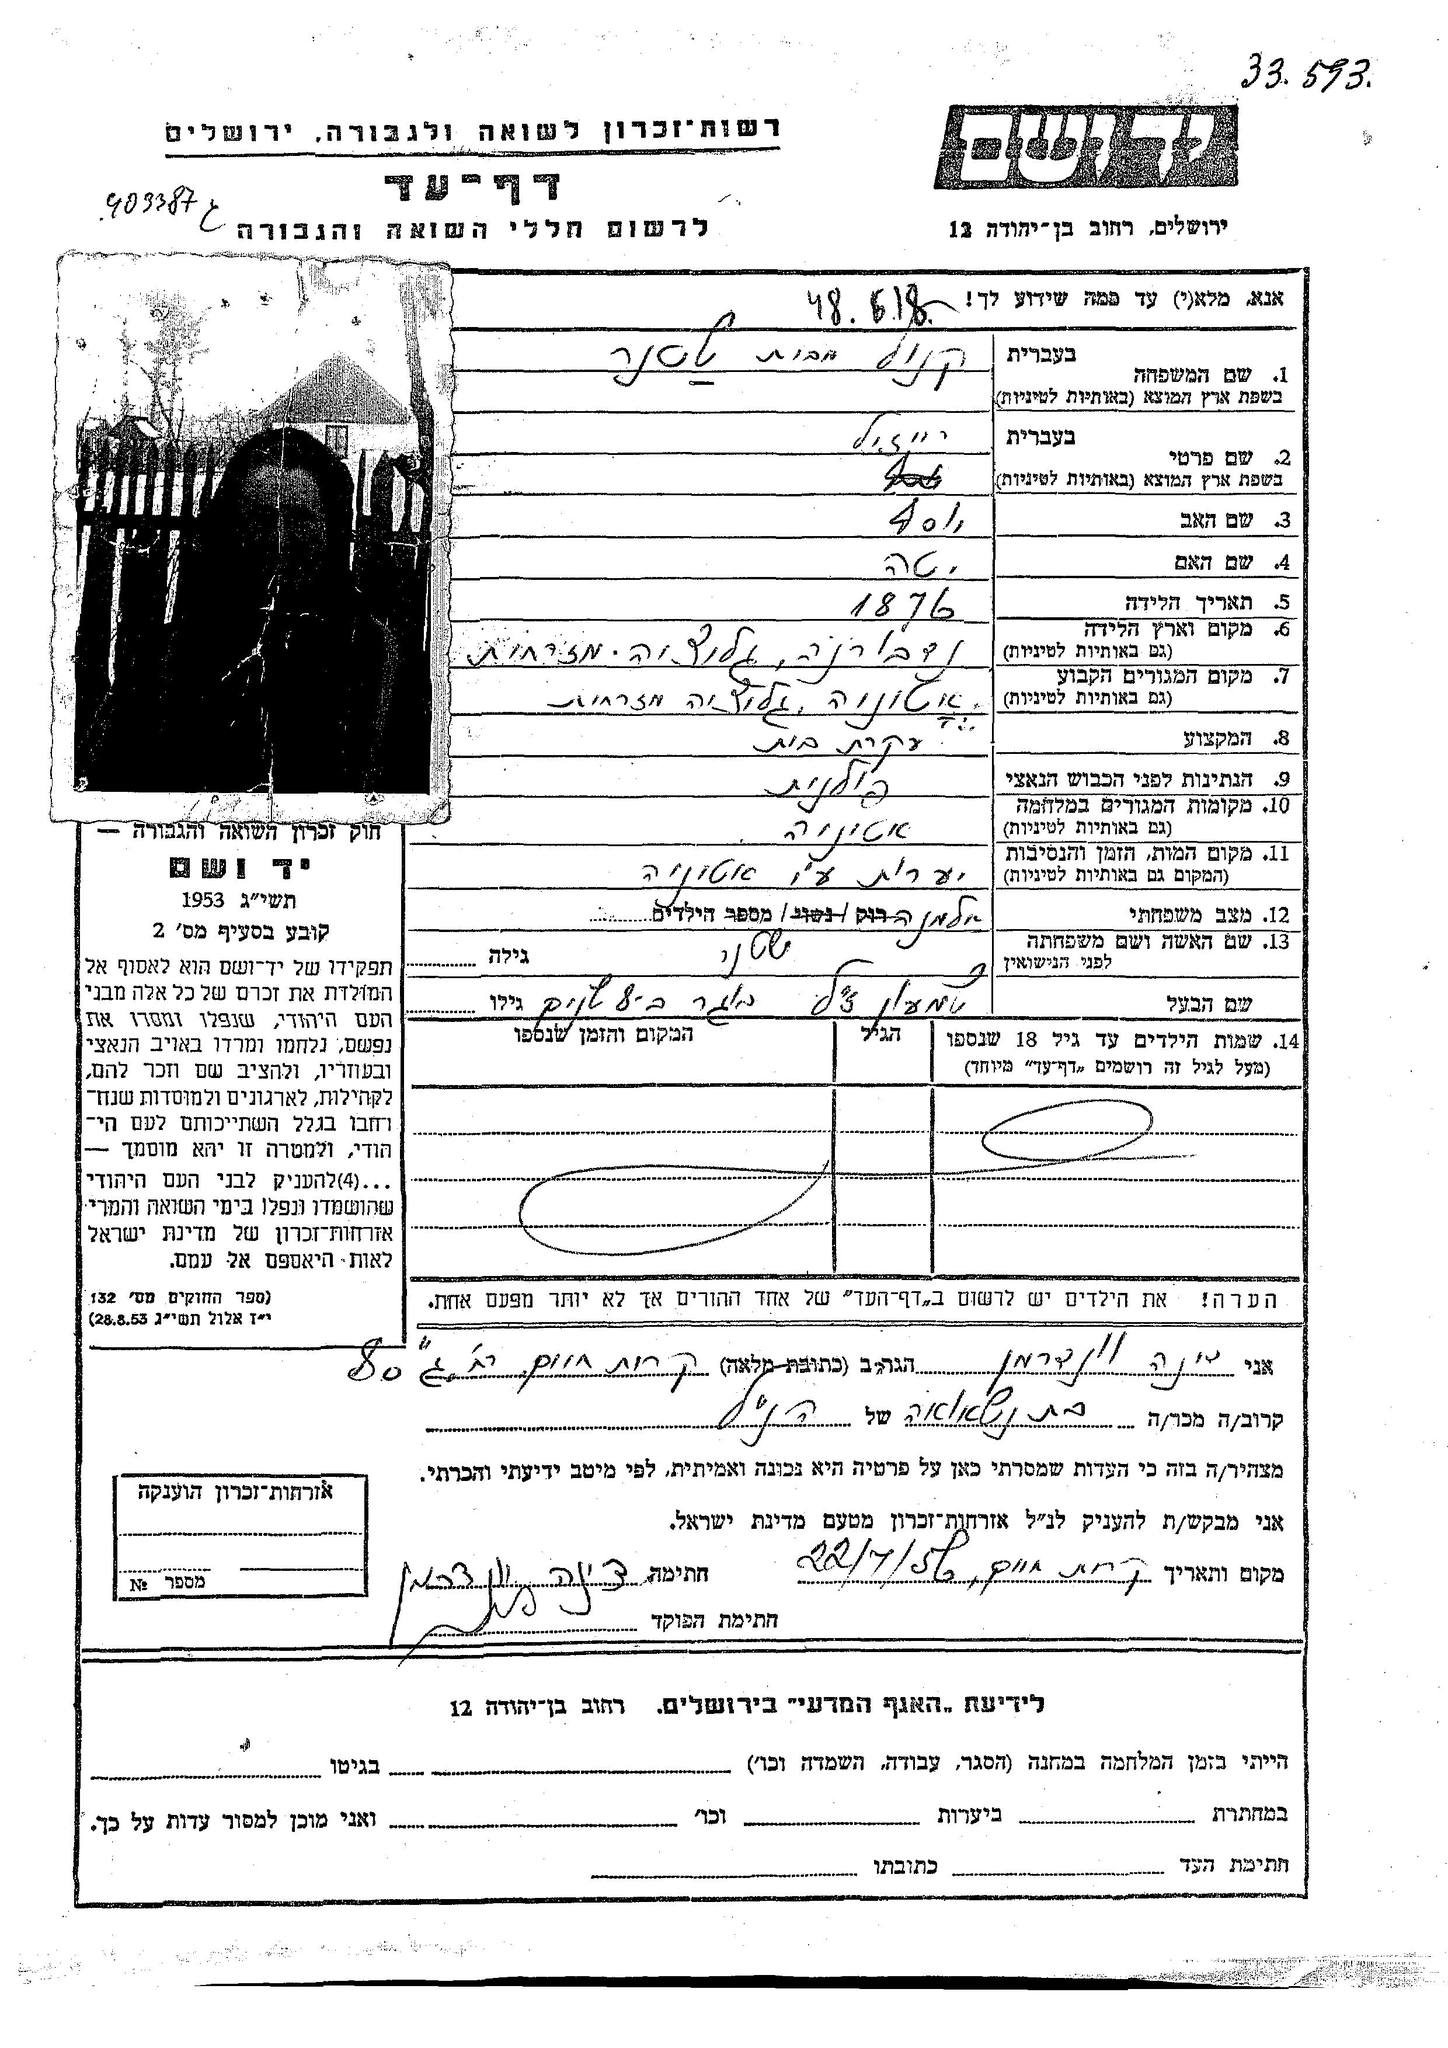 33.593.
ידושם
רשות־זכרון לשואה ולגבורה, ירושלים
דף־עד
403387
לרשום חללי השואה והגבורה
ירושלים, רחוב בן־יהודה 12
אנא, מלא(י) עד כמה שידוע לך!
1. שם המשפחה
בעברית
קנול מבית שטנר
בשפת ארץ המוצא (באותיות לטיניות)
2. שם פרטי
בעברית
רייזיל
בשפת ארץ המוצא (באותיות לטיניות)
3. שם האב יוסף
4. שם האם יטה
5. תאריך הלידה 1876
6. מקום וארץ הלידה
(גם באותיות לטיניות)
נדבורנה, גליציה מזרחית
7. מקום המגורים הקבוע
(גם באותיות לטיניות)
גליציה מזרחית
8. המקצוע עקרת בית
9. הנתינות לפני הכבוש הנאצי פולנית
10. מקומות המגורים במלחמה
(גם באותיות לטיניות)
אטיניה
11. מקום המות, הזמן והנסיבות
(המקום גם באותיות לטיניות)
יערות ע"י אטיניה
12. מצב משפחתי אלמנה רוק / נשוי / מספר הילדים
13. שם האשה ושם משפחתה
לפני הנישואין
שטנר גילה
שם הבעל שמעון ז"ל גילו
14. שמות הילדים עד גיל 18 שנספו
(מעל לגיל זה רושמים „דף־עד" מיוחד)
הגיל
המקום והזמן שנספו
חוק זכרון השואה והגבורה —
יד ושם
תשי"ג 1953
קובע בסעיף מס' 2
תפקידו של יד־ושם הוא לאסוף אל
המולדת את זכרם של כל אלה מבני
העם היהודי, שנפלו ומסרו את
נפשם, נלחמו ומרדו באויב הנאצי
ובעוזריו, ולהציב שם וזכר להם,
לקהילות, לארגונים ולמוסדות שנח־
רחבו בגלל השתייכותם לעם הי־
הודי, ולמטרה זו יהא מוסמך —
...(4)להעניק לבני העם היהודי
שהושמדו ונפלו בימי השואה והמרי
אזרחות־זכרון של מדינת ישראל
לאות היאספם אל עמם.
(ספר החוקים מס' 132
י"ז אלול תשי"ג 28.8.53)
הערה! את הילדים יש לרשום ב„דף־העד" של אחד ההורים אך לא יותר מפעם אחת.
אני דינה וונדרמן הגר/ב (כתובת מלאה) קרית חיים, רח' ג' 80
קרוב/ה מכר/ה בת נשואה של הנ"ל
מצהיר/ה בזה כי העדות שמסרתי כאן על פרטיה היא נכונה ואמיתית, לפי מיטב ידיעתי והכרתי.
אני מבקש/ת להעניק לנ"ל אזרחות־זכרון מטעם מדינת ישראל.
מקום ותאריך קרית חיים, 22/7/56 חתימה דינה וונדרמן
חתימת הפוקד
אזרחות־זכרון הוענקה
מספר №
לידיעת „האגף המדעי" בירושלים, רחוב בן־יהודה 12
הייתי בזמן המלחמה במחנה (הסגר, עבודה, השמדה וכו') בגיטו
במחתרת ביערות וכו' ואני מוכן למסור עדות על כך.
חתימת העד כתובתו